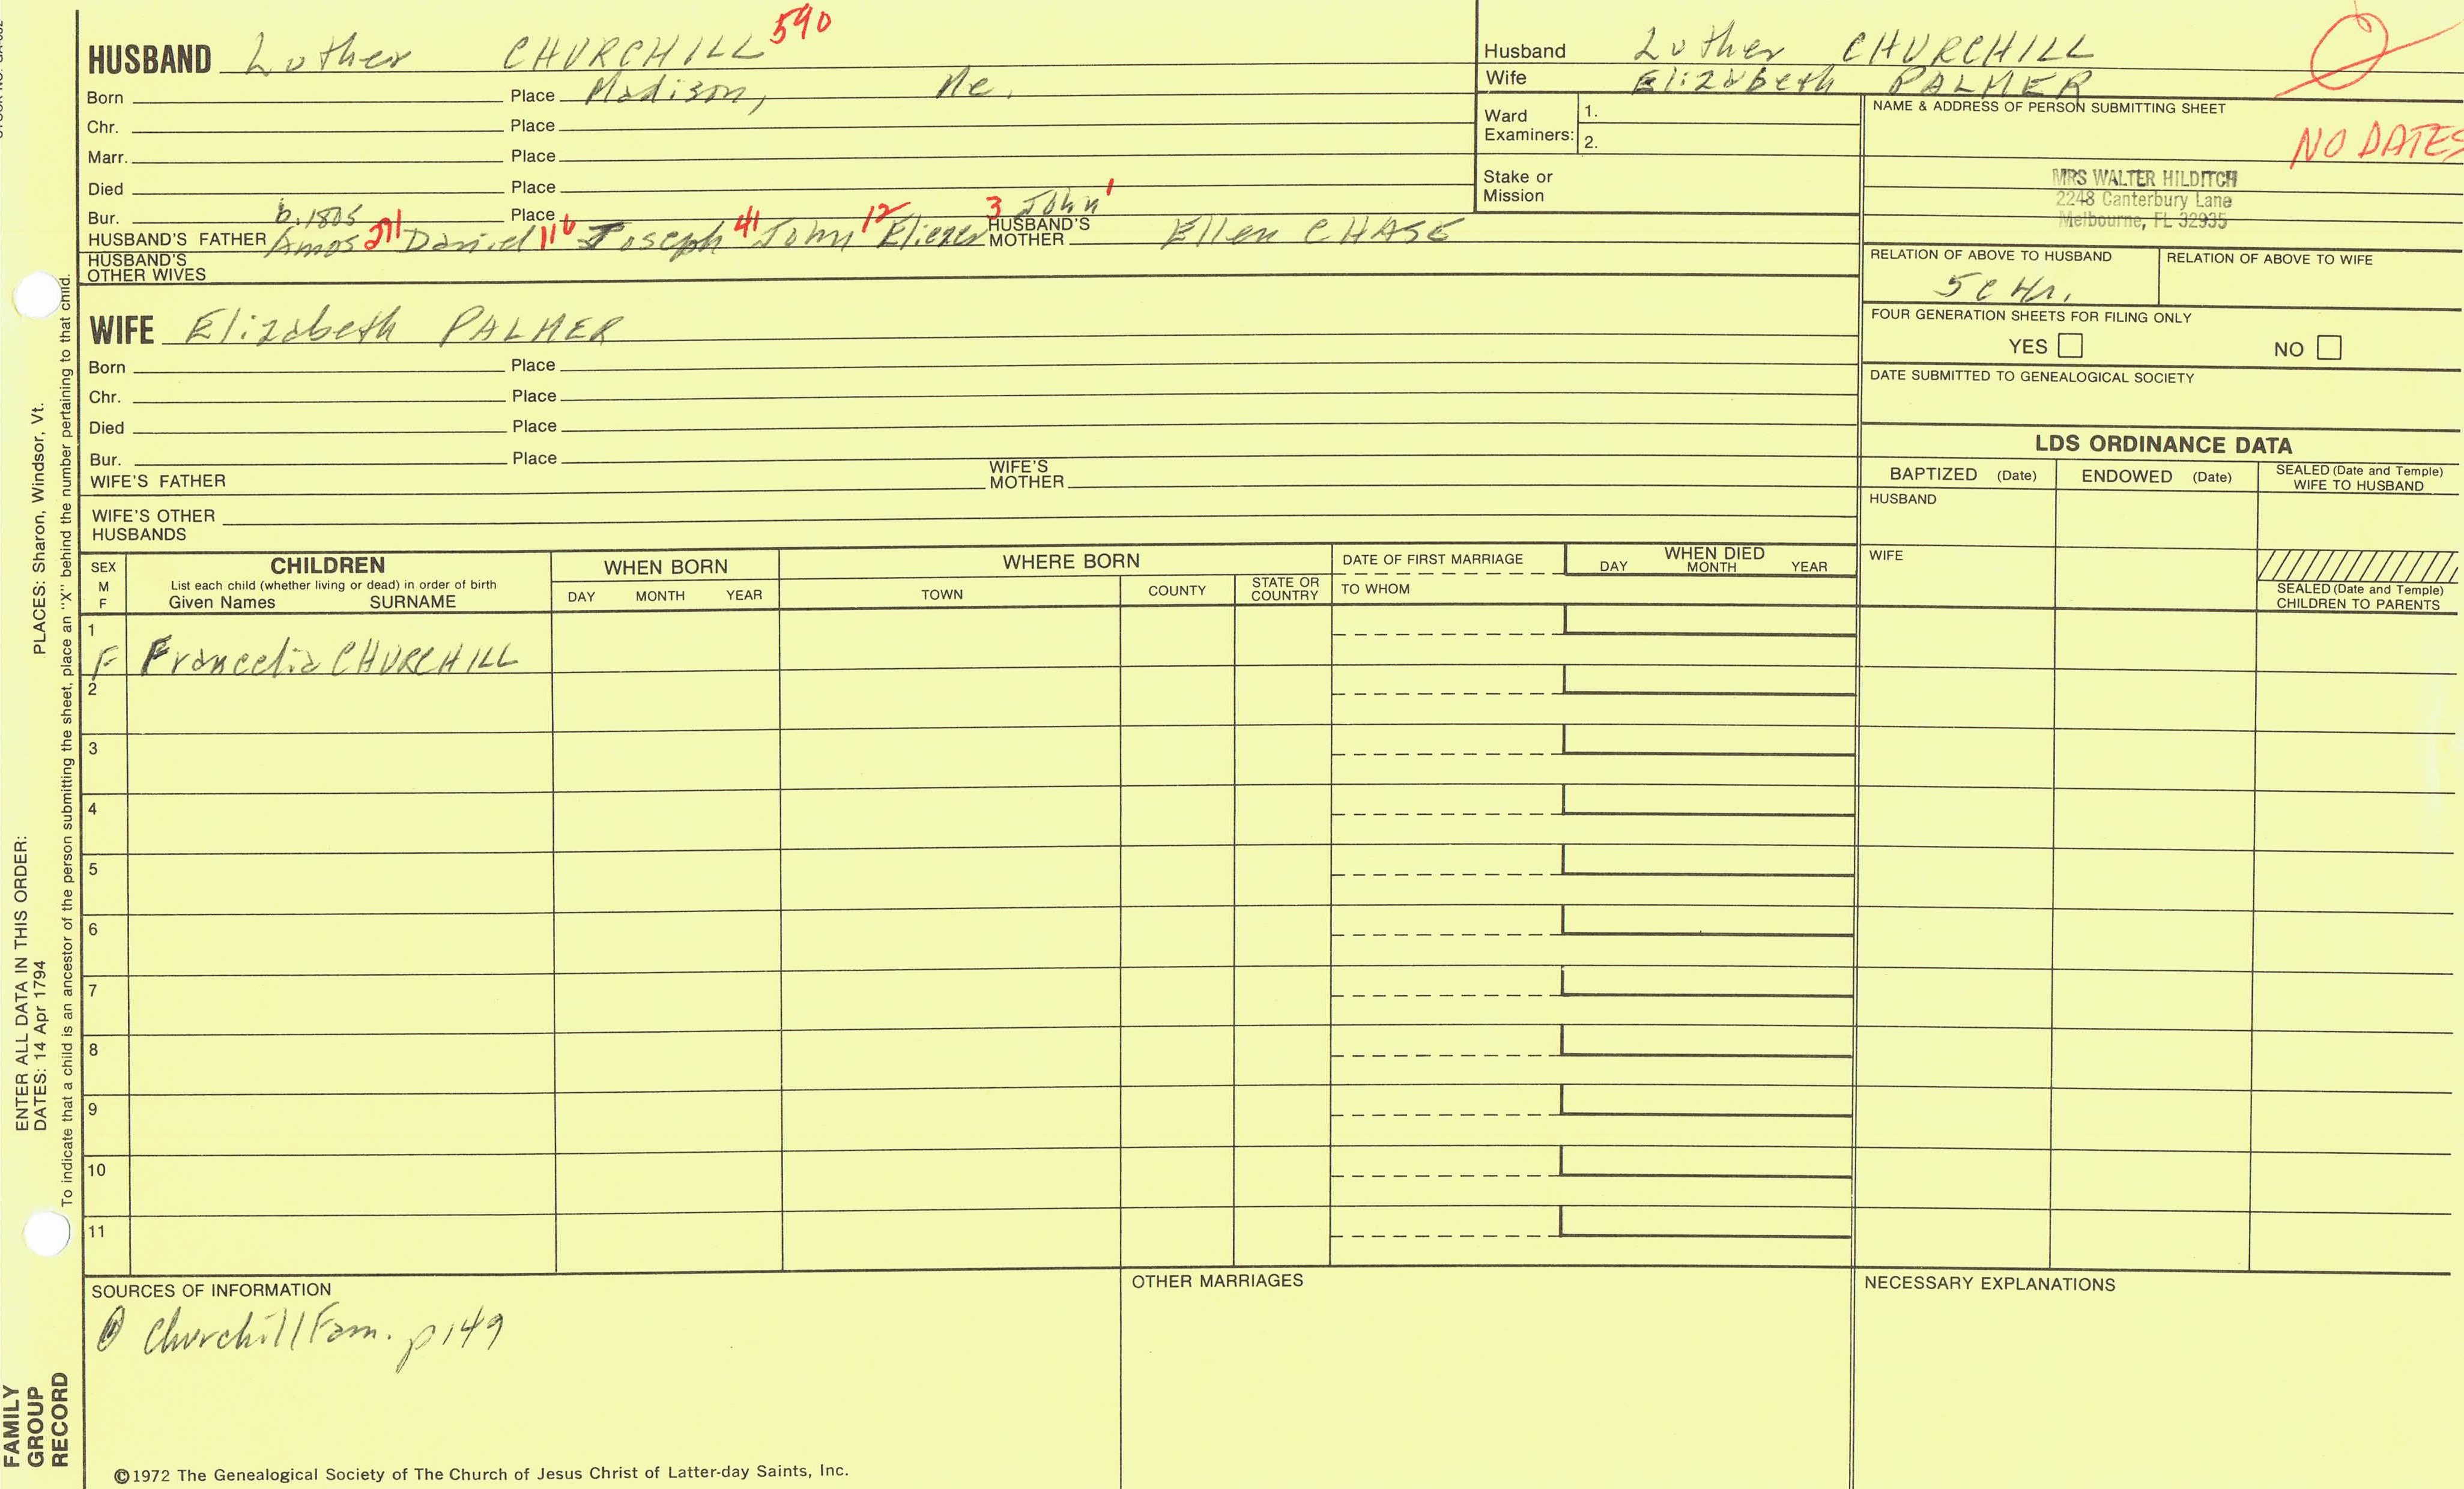 HUSBAND Luther CHURCHILL 590
Born Place Madison, Me.
Chr. Place
Marr. Place
Died Place
Bur. b.1805 Place 3 John 1
HUSBAND'S FATHER Amos 271 Daniel 116 Joseph 41 John 12 Eliezer HUSBAND'S MOTHER Ellen CHASE
HUSBAND'S OTHER WIVES
WIFE Elizabeth PALMER
Born Place
Chr. Place
Died Place
Bur. Place
WIFE'S FATHER WIFE'S MOTHER
WIFE'S OTHER HUSBANDS
Husband Luther CHURCHILL
Wife Elizabeth PALMER
Ward Examiners: 1.
2.
Stake or Mission
NAME & ADDRESS OF PERSON SUBMITTING SHEET
NO DATES
MRS WALTER HILDITCH
2248 Canterbury Lane
Melbourne, FL 32935
RELATION OF ABOVE TO HUSBAND RELATION OF ABOVE TO WIFE
FOUR GENERATION SHEETS FOR FILING ONLY
YES NO
DATE SUBMITTED TO GENEALOGICAL SOCIETY
LDS ORDINANCE DATA
BAPTIZED (Date) ENDOWED (Date) SEALED (Date and Temple) WIFE TO HUSBAND
HUSBAND
WIFE
SEALED (Date and Temple) CHILDREN TO PARENTS
SEX M F
CHILDREN
List each child (whether living or dead) in order of birth
Given Names SURNAME
WHEN BORN
DAY MONTH YEAR
WHERE BORN
TOWN COUNTY STATE OR COUNTRY
DATE OF FIRST MARRIAGE
TO WHOM
WHEN DIED
DAY MONTH YEAR
1
F Francelia CHURCHILL
2
3
4
5
6
7
8
9
10
11
SOURCES OF INFORMATION
Churchill Fam. p149
OTHER MARRIAGES
NECESSARY EXPLANATIONS
©1972 The Genealogical Society of The Church of Jesus Christ of Latter-day Saints, Inc.
FAMILY GROUP RECORD
ENTER ALL DATA IN THIS ORDER:
DATES: 14 Apr 1794
PLACES: Sharon, Windsor, Vt.
To indicate that a child is an ancestor of the person submitting the sheet, place an "X" behind the number pertaining to that child.